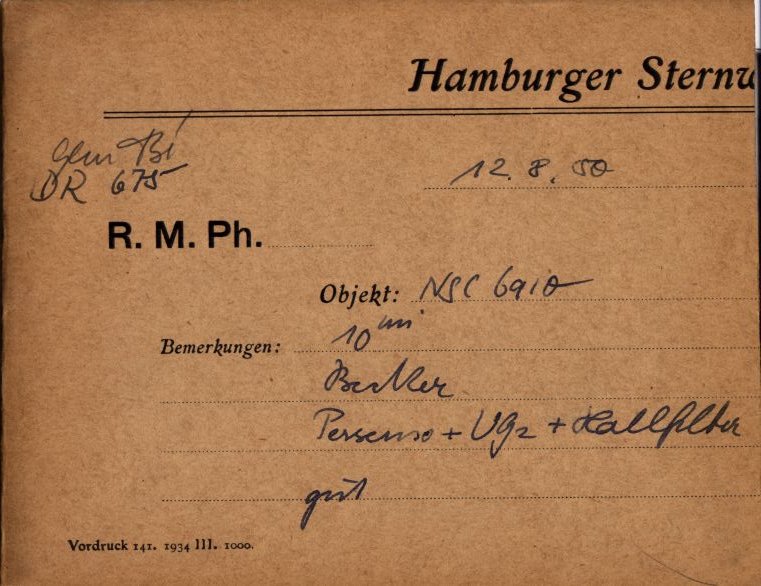 Hamburger Sternw
gem Bi
DR 675
12. 8. 50
R. M. Ph.
Objekt: NGC 6910
Bemerkungen: 10 min
Becker
Persenso + UG2 + Hallfilter
gut
Vordruck 141. 1934 III. 1000.